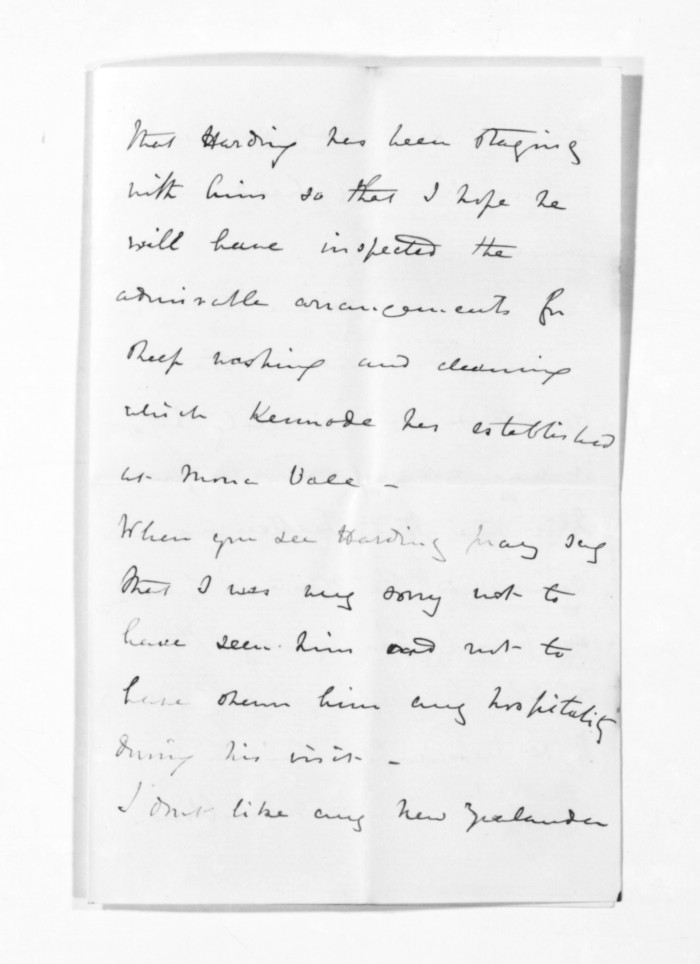 that Harding has been staying
with him so that I hope he
will have inspected the
admirable arrangements for
sheep washing and cleaning
which Kermode has established
at Mona Vale –
When you see Harding pray say
that I was very sorry not to
have seen him and not to
have shewn him any hospitality
during his visit –
I don't like any New Zealander